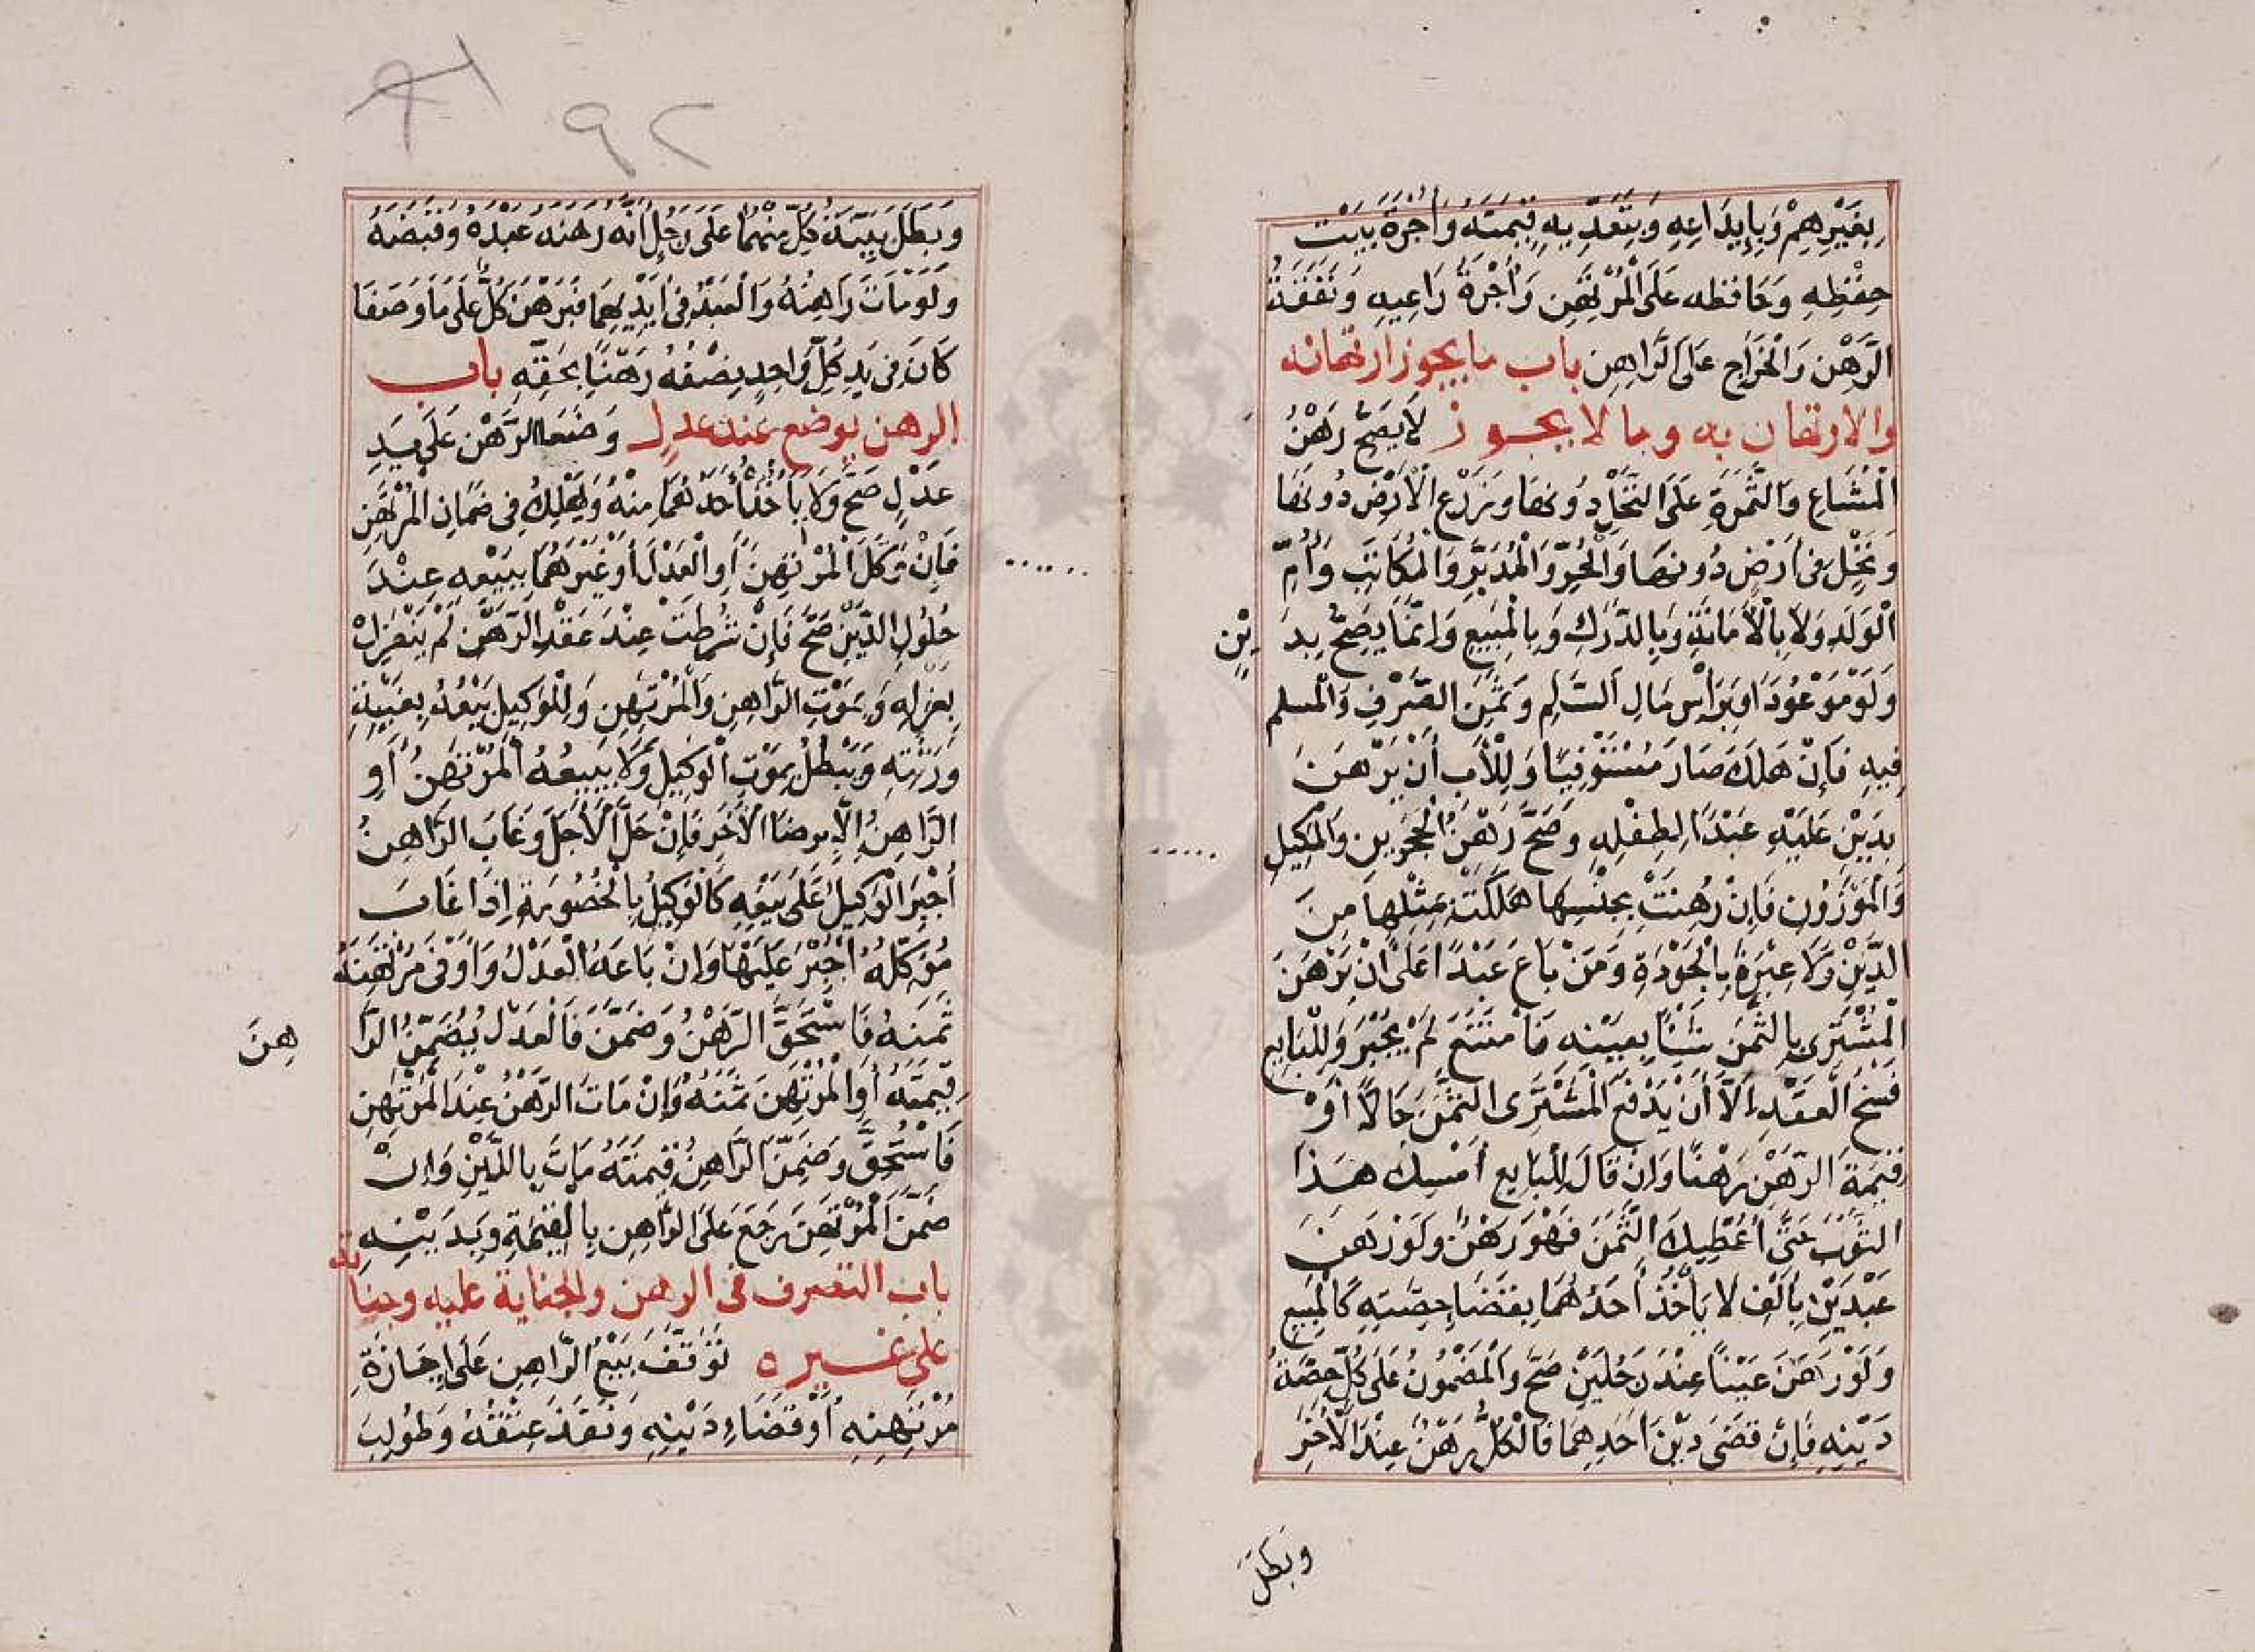 بِغَيْرِهِمْ وَبِإِيدَاعِهِ وَتَعَدِّيهِ قِيمَتَهُ وَأُجْرَةُ بَيْتِ
حِفْظِهِ وَحَافِظِهِ عَلَى الْمُرْتَهِنِ وَأُجْرَةُ رَاعِيهِ وَنَفَقَةُ
الرَّهْنِ وَالْخَرَاجِ عَلَى الرَّاهِنِ باب ما يجوز ارتهانه
والارتهان به وما لا يجوز لَا يَصِحُّ رَهْنُ
الْمُشَاعِ وَالثَّمَرَةِ عَلَى النَّخْلِ دُونَهَا وَزَرْعِ الْأَرْضِ دُونَهَا
وَنَخْلٍ فِي أَرْضٍ دُونَهَا وَالْحُرِّ وَالْمُدَبَّرِ وَالْمُكَاتَبِ وَأُمِّ
الْوَلَدِ وَلَا بِالْأَمَانَةِ وَبِالدَّرَكِ وَبِالْمَبِيعِ وَإِنَّمَا يَصِحُّ بِدَيْنٍ
وَلَوْ مَوْعُودًا وَبِرَأْسِ مَالِ السَّلَمِ وَثَمَنِ الصَّرْفِ وَالْمُسْلَمِ
فِيهِ فَإِنْ هَلَكَ صَارَ مُسْتَوْفِيًا وَلِلْأَبِ أَنْ يَرْهَنَ
بِدَيْنٍ عَلَيْهِ عَبْدًا لِطِفْلِهِ وَصَحَّ رَهْنُ الْحَجَرَيْنِ وَالْمَكِيلِ
وَالْمَوْزُونِ فَإِنْ رُهِنَتْ بِجِنْسِهَا هَلَكَتْ بِمِثْلِهَا مِنَ
الدَّيْنِ وَلَا عِبْرَةَ بِالْجَوْدَةِ وَمَنْ بَاعَ عَبْدًا عَلَى أَنْ يَرْهَنَ
الْمُشْتَرِي بِالثَّمَنِ شَيْئًا بِعَيْنِهِ فَامْتَنَعَ لَمْ يُجْبَرْ وَلِلْبَايِعِ
فَسْخُ الْعَقْدِ إِلَّا أَنْ يَدْفَعَ الْمُشْتَرِي الثَّمَنَ حَالًّا أَوْ
قِيمَةَ الرَّهْنِ رَهْنًا وَإِنْ قَالَ لِلْبَايِعِ أَمْسِكْ هَذَا
الثَّوْبَ حَتَّى أُعْطِيَكَ الثَّمَنَ فَهُوَ رَهْنٌ وَلَوْ رَهَنَ
عَبْدَيْنِ بِأَلْفٍ لَا يَأْخُذُ أَحَدَهُمَا بِقَضَاءِ حِصَّتِهِ كَالْمَبِيعِ
وَلَوْ رَهَنَ عَيْنًا عِنْدَ رَجُلَيْنِ صَحَّ وَالْمَضْمُونُ عَلَى كُلٍّ حِصَّةُ
دَيْنِهِ فَإِنْ قَضَى دَيْنَ أَحَدِهِمَا فَالْكُلُّ رَهْنٌ عِنْدَ الْآخَرِ
وَبَطَلَ
٩٢
وَبَطَلَ بَيِّنَةُ كُلٍّ مِنْهُمَا عَلَى رَجُلٍ أَنَّهُ رَهَنَهُ عَبْدَهُ وَقَبَضَهُ
وَلَوْ مَاتَ رَاهِنُهُ وَالْعَبْدُ فِي أَيْدِيهِمَا فَبَرْهَنَ كُلٌّ عَلَى مَا وَصَفْنَا
كَانَ فِي يَدِ كُلِّ وَاحِدٍ نِصْفُهُ رَهْنًا بِحَقِّهِ باب
الرهن يوضع عند عدل وَضَعَا الرَّهْنَ عَلَى يَدِ
عَدْلٍ صَحَّ وَلَا يَأْخُذُ أَحَدُهُمَا مِنْهُ وَيَهْلِكُ فِي ضَمَانِ الْمُرْتَهِنِ
فَإِنْ وَكَّلَ الْمُرْتَهِنَ أَوِ الْعَدْلَ أَوْ غَيْرَهُمَا بِبَيْعِهِ عِنْدَ
حُلُولِ الدَّيْنِ صَحَّ فَإِنْ شُرِطَتْ عِنْدَ عَقْدِ الرَّهْنِ لَمْ يَنْعَزِلْ
بِعَزْلِهِ وَبِمَوْتِ الرَّاهِنِ وَالْمُرْتَهِنِ وَلِلْوَكِيلِ بَيْعُهُ بِغَيْبَةِ
وَرَثَتِهِ وَيَبْطُلُ بِمَوْتِ الْوَكِيلِ وَلَا يَبِيعُهُ الْمُرْتَهِنُ أَوِ
الرَّاهِنُ إِلَّا بِرِضَا الْآخَرِ فَإِنْ حَلَّ الْأَجَلُ وَغَابَ الرَّاهِنُ
أُجْبِرَ الْوَكِيلُ عَلَى بَيْعِهِ كَالْوَكِيلِ بِالْخُصُومَةِ إِذَا غَابَ
مُوَكِّلُهُ أُجْبِرَ عَلَيْهَا وَإِنْ بَاعَهُ الْعَدْلُ وَأَوْفَى مُرْتَهِنَهُ
ثَمَنَهُ فَاسْتُحِقَّ الرَّهْنُ وَضَمِنَ فَالْعَدْلُ يُضَمِّنُ الرَّاهِنَ
قِيمَتَهُ أَوِ الْمُرْتَهِنَ ثَمَنَهُ وَإِنْ مَاتَ الرَّهْنُ عِنْدَ الْمُرْتَهِنِ
فَاسْتُحِقَّ وَضَمِنَ الرَّاهِنُ قِيمَتَهُ مَاتَ بِالدَّيْنِ وَإِنْ
ضَمَّنَ الْمُرْتَهِنَ رَجَعَ عَلَى الرَّاهِنِ بِالْقِيمَةِ وَبِدَيْنِهِ
باب التصرف في الرهن والجناية عليه وجنايته
على غيره تَوَقَّفَ بَيْعُ الرَّاهِنِ عَلَى إِجَازَةِ
مُرْتَهِنِهِ أَوْ قَضَاءِ دَيْنِهِ وَنَفَذَ عِتْقُهُ وَطُولِبَ